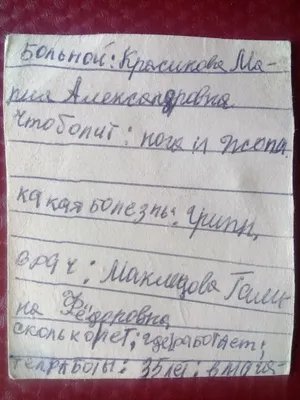 Больной: Красикова Ма-
рия Александровна
что болит: нога и жопа.
какая болезнь: грипп,
врач: Маклецова Гали-
на Фёдоровна
сколько лет; где работает;
тел работы: 35 лет; в мага-